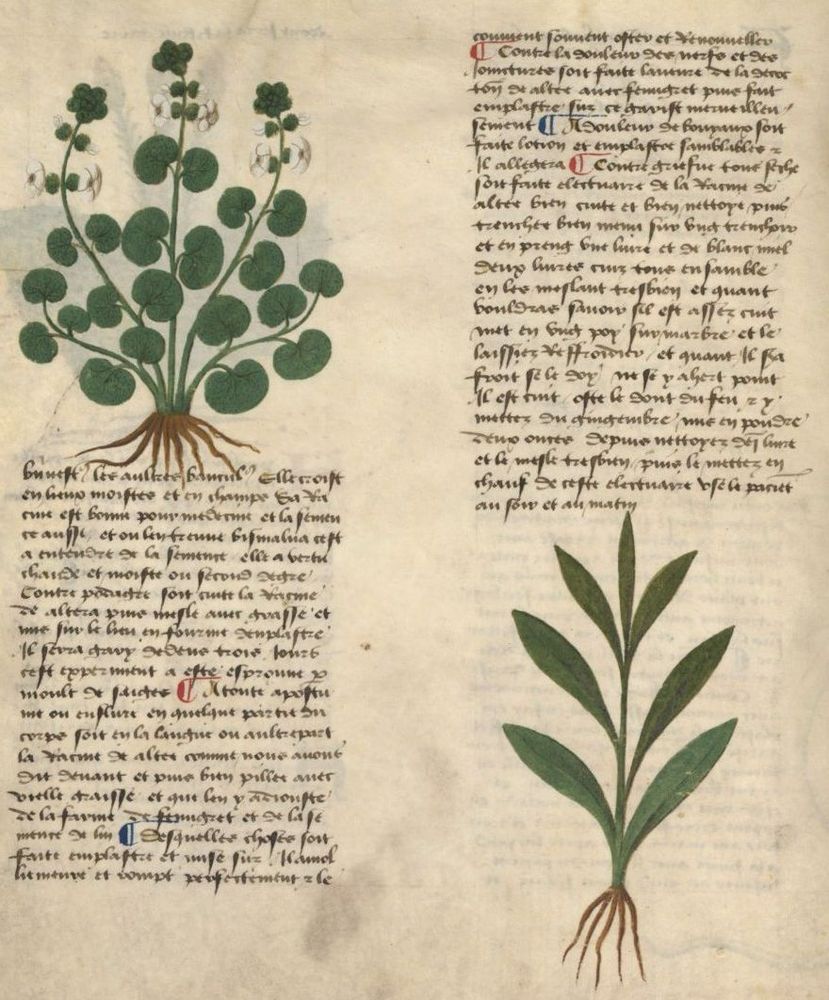 bunest / les aultres bancul / Elle croist
en lieux moistes et en champs Sa Ra
cine est bonne pour medecine et la semen
ce aussi / et ou len treuve bismalua cest
a entendre de la semence / elle a vertu
chaude et moiste ou second degre
Contre podagre soit cuite la Racine
de altera puis mesle avec graisse et
mis sur le lieu en fourme demplastre
Il sera gary dedens trois Jours
cest experiment a este esprouve p
moult de saiges ¶ A toute apostu
me ou enflure en quelque partie du
corps soit en la langue ou aultrepart
la Racine de altee comme nous avons
dit devant et puis bien pillee avec
vielle graisse et que len y adiouste
de la farine de fenugret et de la se
mence de lin ¶ Desquelles choses soit
faite emplastre et mise sur Il amol
lie meure et rompt perfectement z le
convient souvent oster et Renouveller
¶ Contre la douleur des nerfs et des
Joinctures soit faite laveure de la decoc
ton de altee avec fenugret puis fait
emplastre sur ce garist merveilleu
sement ¶ A douleur de soit
faite lotion et emplastre samblables z
Il allegera ¶ Contre griefue tous seche
soit faite electuaire de la Racine de
altee bien cuite et bien nettoye puis
trenchee bien menu sur ung trenchoir
et en preng une livre et de blanc miel
deux livres cuis tous ensamble
en les meslant tresbien et quant
vouldras savoir sil est assez cuit
met en ung poy sur marbre et le
laissiez Reffroidier / et quant Il sra
froit se le doy ne se y ahert point
Il est cuit / oste le dont du feu z y
mettez du gingembre mis en pouldre
deux onces depuis nettoyez demi livre
et le mesle tresbien / puis le mettez en
chauf de ceste electuaire use le pacient
au soir et au matin